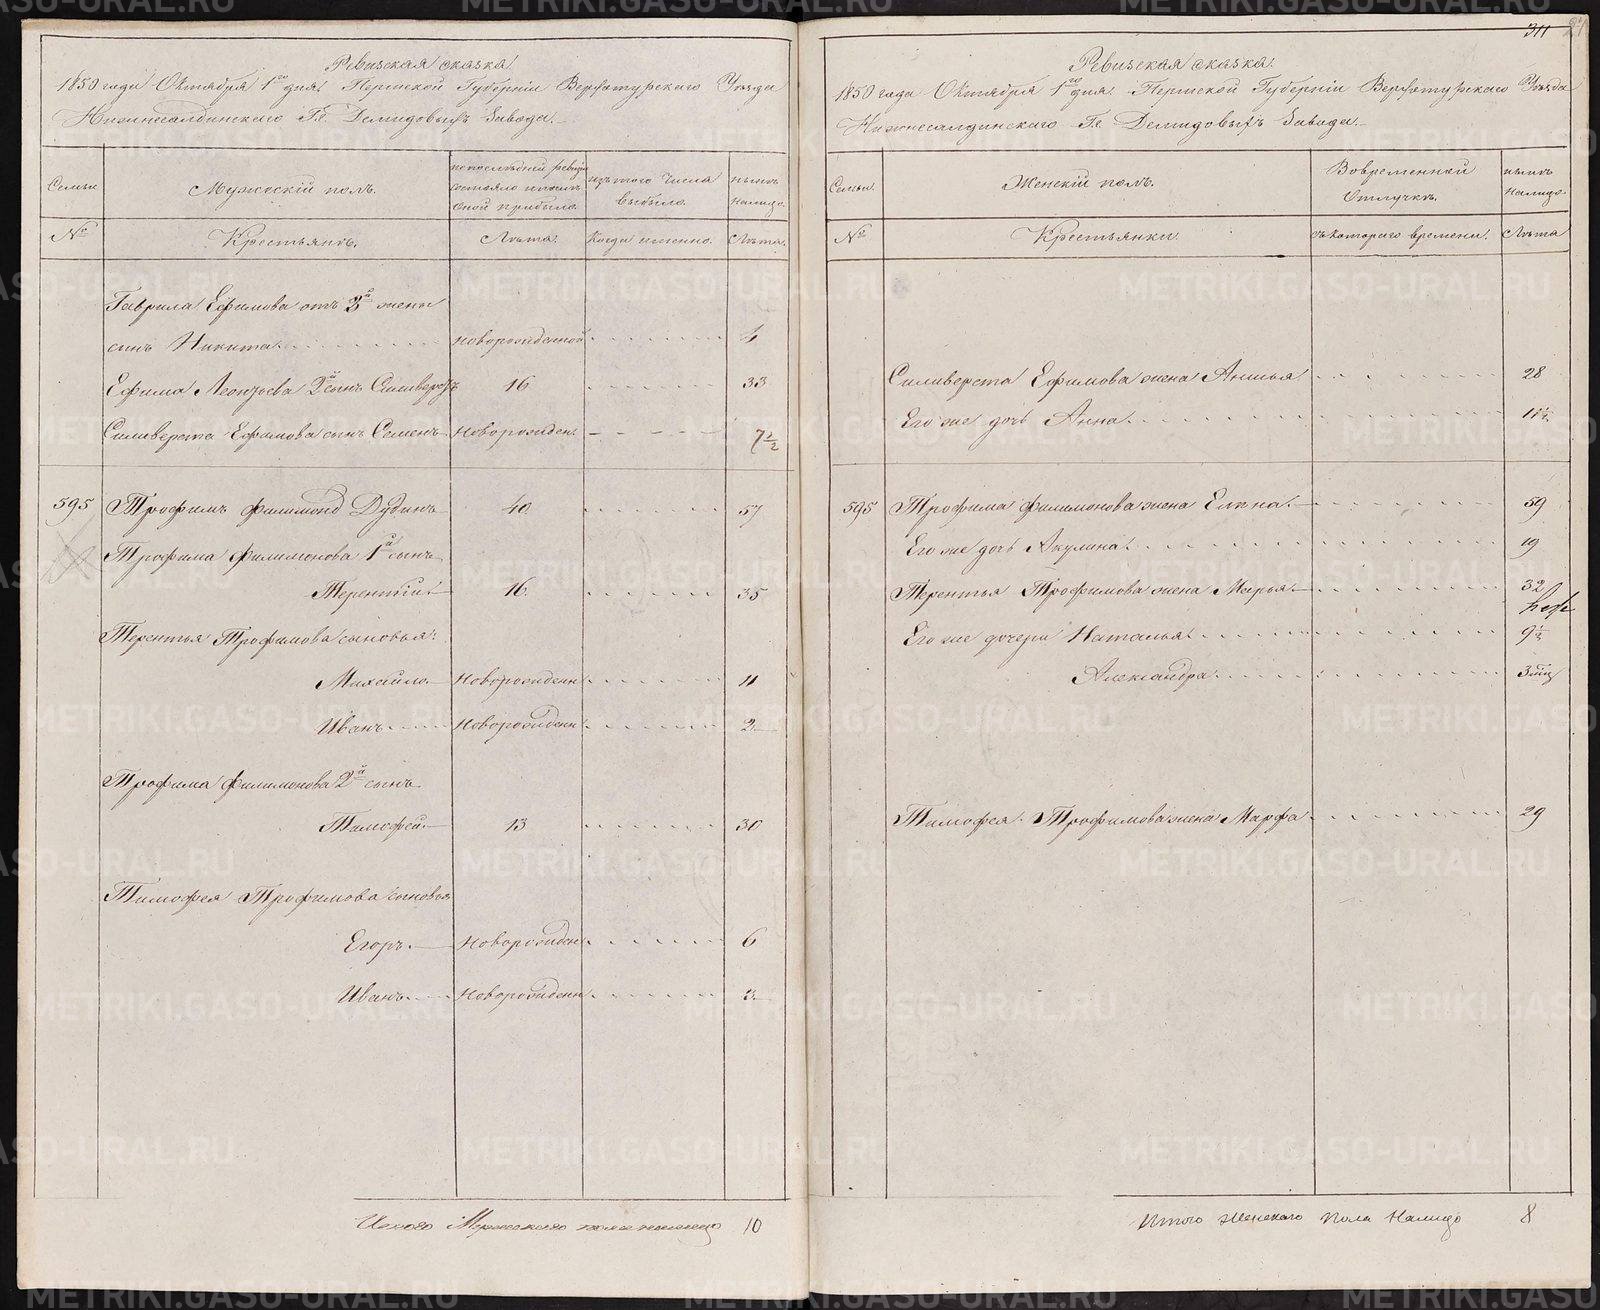 Ревизская сказка
1850 года Октября 1го дня. Пермской Губернiи Верхотурского Уѣзда
Нижнесалдинскаго Гг. Демидовыхъ Завода.
Семьи
Мужескiй полъ.
по последней ревизiи
состояло и после
оной прибыло.
изъ того числа
выбыло.
нынѣ
налицо.
№
Крестьянъ.
Лѣта.
Когда именно.
Лѣта.
Гаврила Ефимова отъ 3й жены
сынъ Никита новорожденной 4
Ефима Леонтьева 2й сынъ Селиверстъ 16 33
Селиверста Ефимова сынъ Семенъ Новорожден. 7 1/2
595 Трофимъ Филимоновъ Дудинъ 40 57
Трофима Филимонова 1й сынъ
Терентiй 16. 35
Терентья Трофимова сыновья:
Михайло Новорожденн 11
Иванъ Новорожденн 2
Трофима Филимонова 2й сынъ
Тимофей 13 30
Тимофея Трофимова сыновья
Егоръ. Новорожден 6
Иванъ. Новорожденн 3
Итого Мужескаго пола налицо 10
311
Ревизская сказка.
1850 года Октября 1го дня. Пермской Губернiи Верхотурскаго Уѣзда
Нижнесалдинскаго Гг. Демидовыхъ Завода.
Семьи.
Женскiй полъ.
Вовременной
Отлучкѣ.
нынѣ
Налицо
№
Крестьянки.
съ котораго времени.
Лѣта
Силиверста Ефимова жена Анисья 28
Его же дочь Анна.
595 Трофима Филимонова жена Елена. 59
Его же дочь Акулина. 19
Терентья Трофимова жена Марья 32
Его же дочери Наталья. 9 1/2
Александра. 3 мѣц
Тимофея Трофимова жена Марфа 29
Итого Женскаго Пола Налицо 8
METRIKI.GASO-URAL.RU